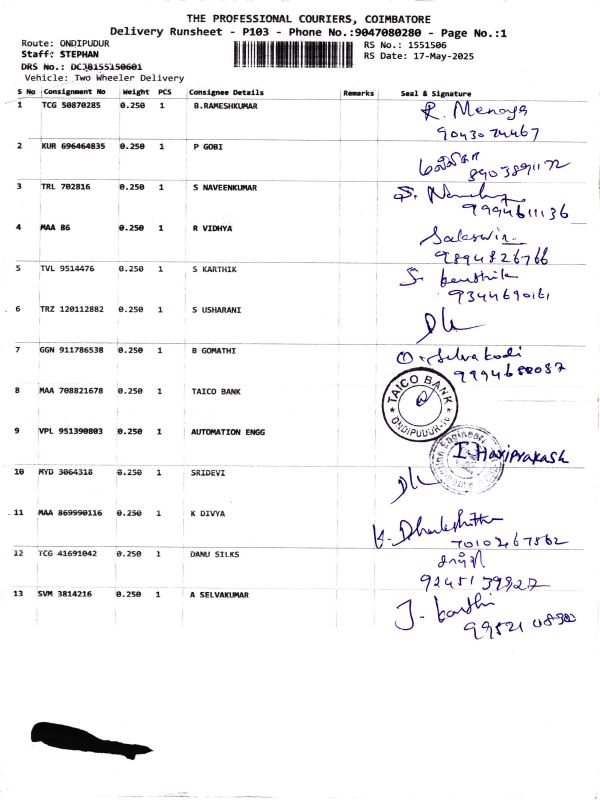 THE PROFESSIONAL COURIERS, COIMBATORE
Delivery Runsheet - P103 - Phone No.:9047080280 - Page No.:1
Route: ONDIPUDUR
RS No.: 1551506
Staff: STEPHAN
RS Date: 17-May-2025
DRS No.: DCJB155150601
Vehicle: Two Wheeler Delivery
S No Consignment No Weight PCS Consignee Details Remarks Seal & Signature
1 TCG 50870285 0.250 1 B.RAMESHKUMAR R. Menaga
9043074467
2 KUR 696464835 0.250 1 P GOBI
8903891172
3 TRL 702816 0.250 1 S NAVEENKUMAR
9994611136
4 MAA 86 0.250 1 R VIDHYA
9894826766
5 TVL 9514476 0.250 1 S KARTHIK S. Karthik
9344690161
6 TRZ 120112882 0.250 1 S USHARANI
7 GGN 911786538 0.250 1 B GOMATHI
8 MAA 708821678 0.250 1 TAICO BANK TAICO BANK
ONDIPUDUR
9 VPL 951390803 0.250 1 AUTOMATION ENGG I. Hariprakash
10 MYD 3064318 0.250 1 SRIDEVI
11 MAA 869990116 0.250 1 K DIVYA
7010467562
12 TCG 41691042 0.250 1 DANU SILKS
13 SVM 3814216 0.250 1 A SELVAKUMAR